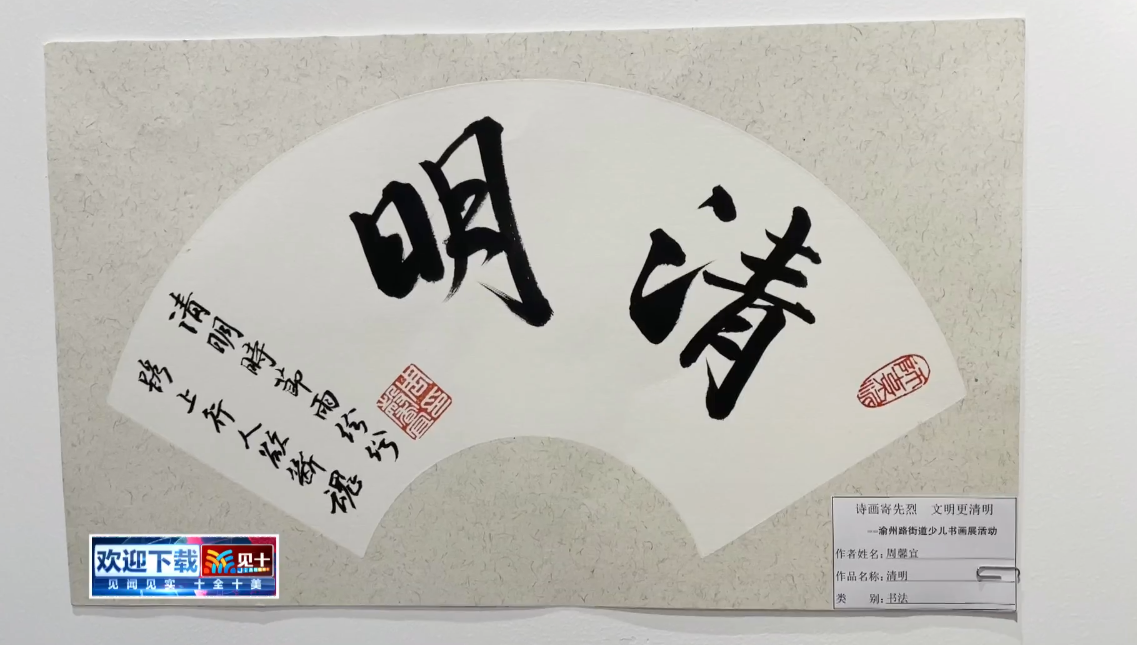 清明
清明時節雨紛紛
路上行人欲斷魂
诗画寄先烈 文明更清明
---渝州路街道少儿书画展活动
作者姓名:周馨宜
作品名称:清明
类 别:书法
欢迎下载 见十
见闻见实 十全十美